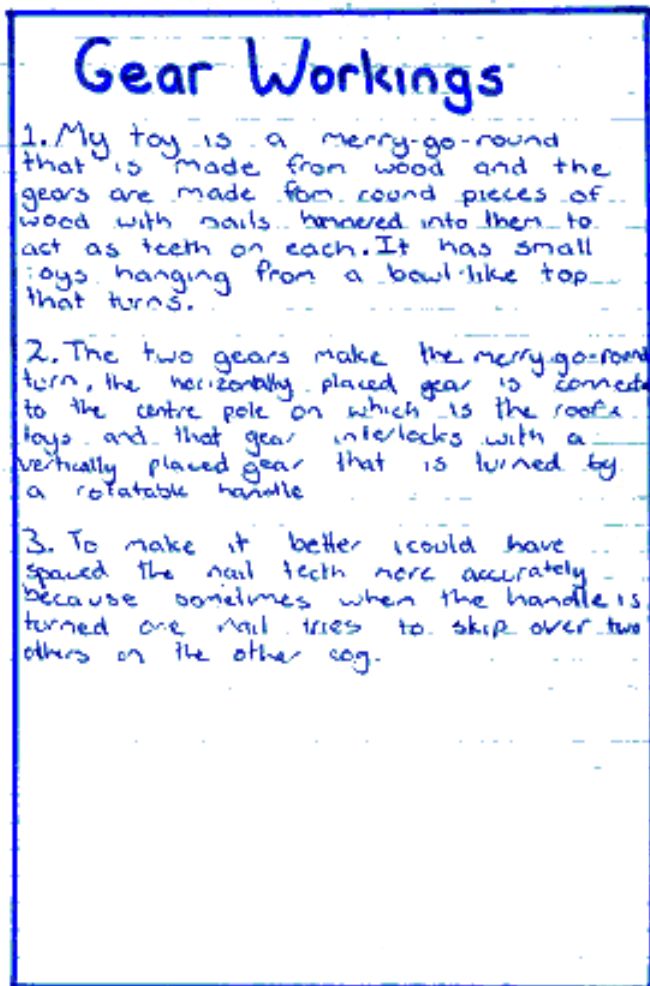 Gear Workings
1. My toy is a merry-go-round
that is made from wood and the
gears are made fom round pieces of
wood with nails hammered into them to
act as teeth on each. It has small
toys hanging from a bowl-like top
that turns.
2. The two gears make the merry-go-round
turn, the horizontally placed gear is connecte
to the centre pole on which is the roof &
toys and that gear interlocks with a
vertically placed gear that is turned by
a rotatable handle
3. To make it better i could have
spaced the nail teeth more accurately
because sometimes when the handle is
turned one nail tries to skip over two
others on the other cog.